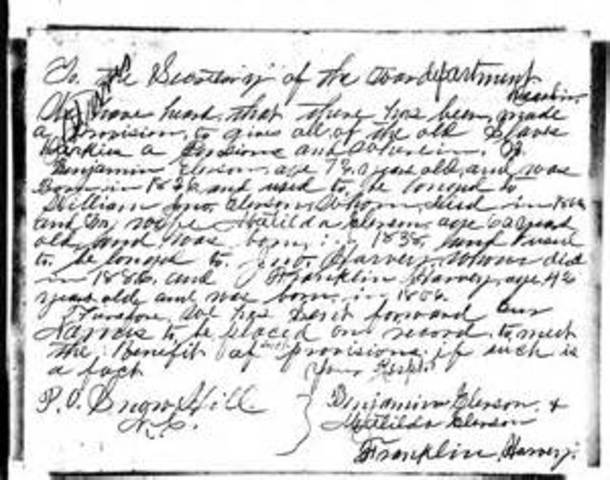 To, the Secretary of the war department
We have heard, that there has been made
a provision, to give all of the old slaves
a pensions and
Benjamin age 78 years old, and was
Born in and used to be longed to
William Jno. Whom died in
and my wife Matilda age years
old, and was born in 1838, and used
to be longed to Jno. Harvey, whom died
in 1886, and Franklin Harvey, age 42
years old, and was born in
Therefore, we has sent forward our
Names to be placed on record, to meet
the Benefit of such provisions, if such is
a fact Your Respt.
P.O. Snow Hill
N.C.
Benjamin &
Matilda
Franklin Harvey.